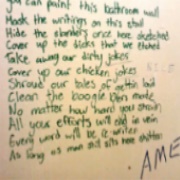 you can paint this bathroom wall
Mask the writings on this stall
Hide the slanders once here sketched
Cover up the dicks that we etched
Take away our dirty jokes
Cover up our chicken jokes
Shroud our tales of gettin' laid
Clean the boogie
No matter how hard you strain
All your efforts will end in vein
Every word will be re-writen
As long as man still sits here shitten
. AME